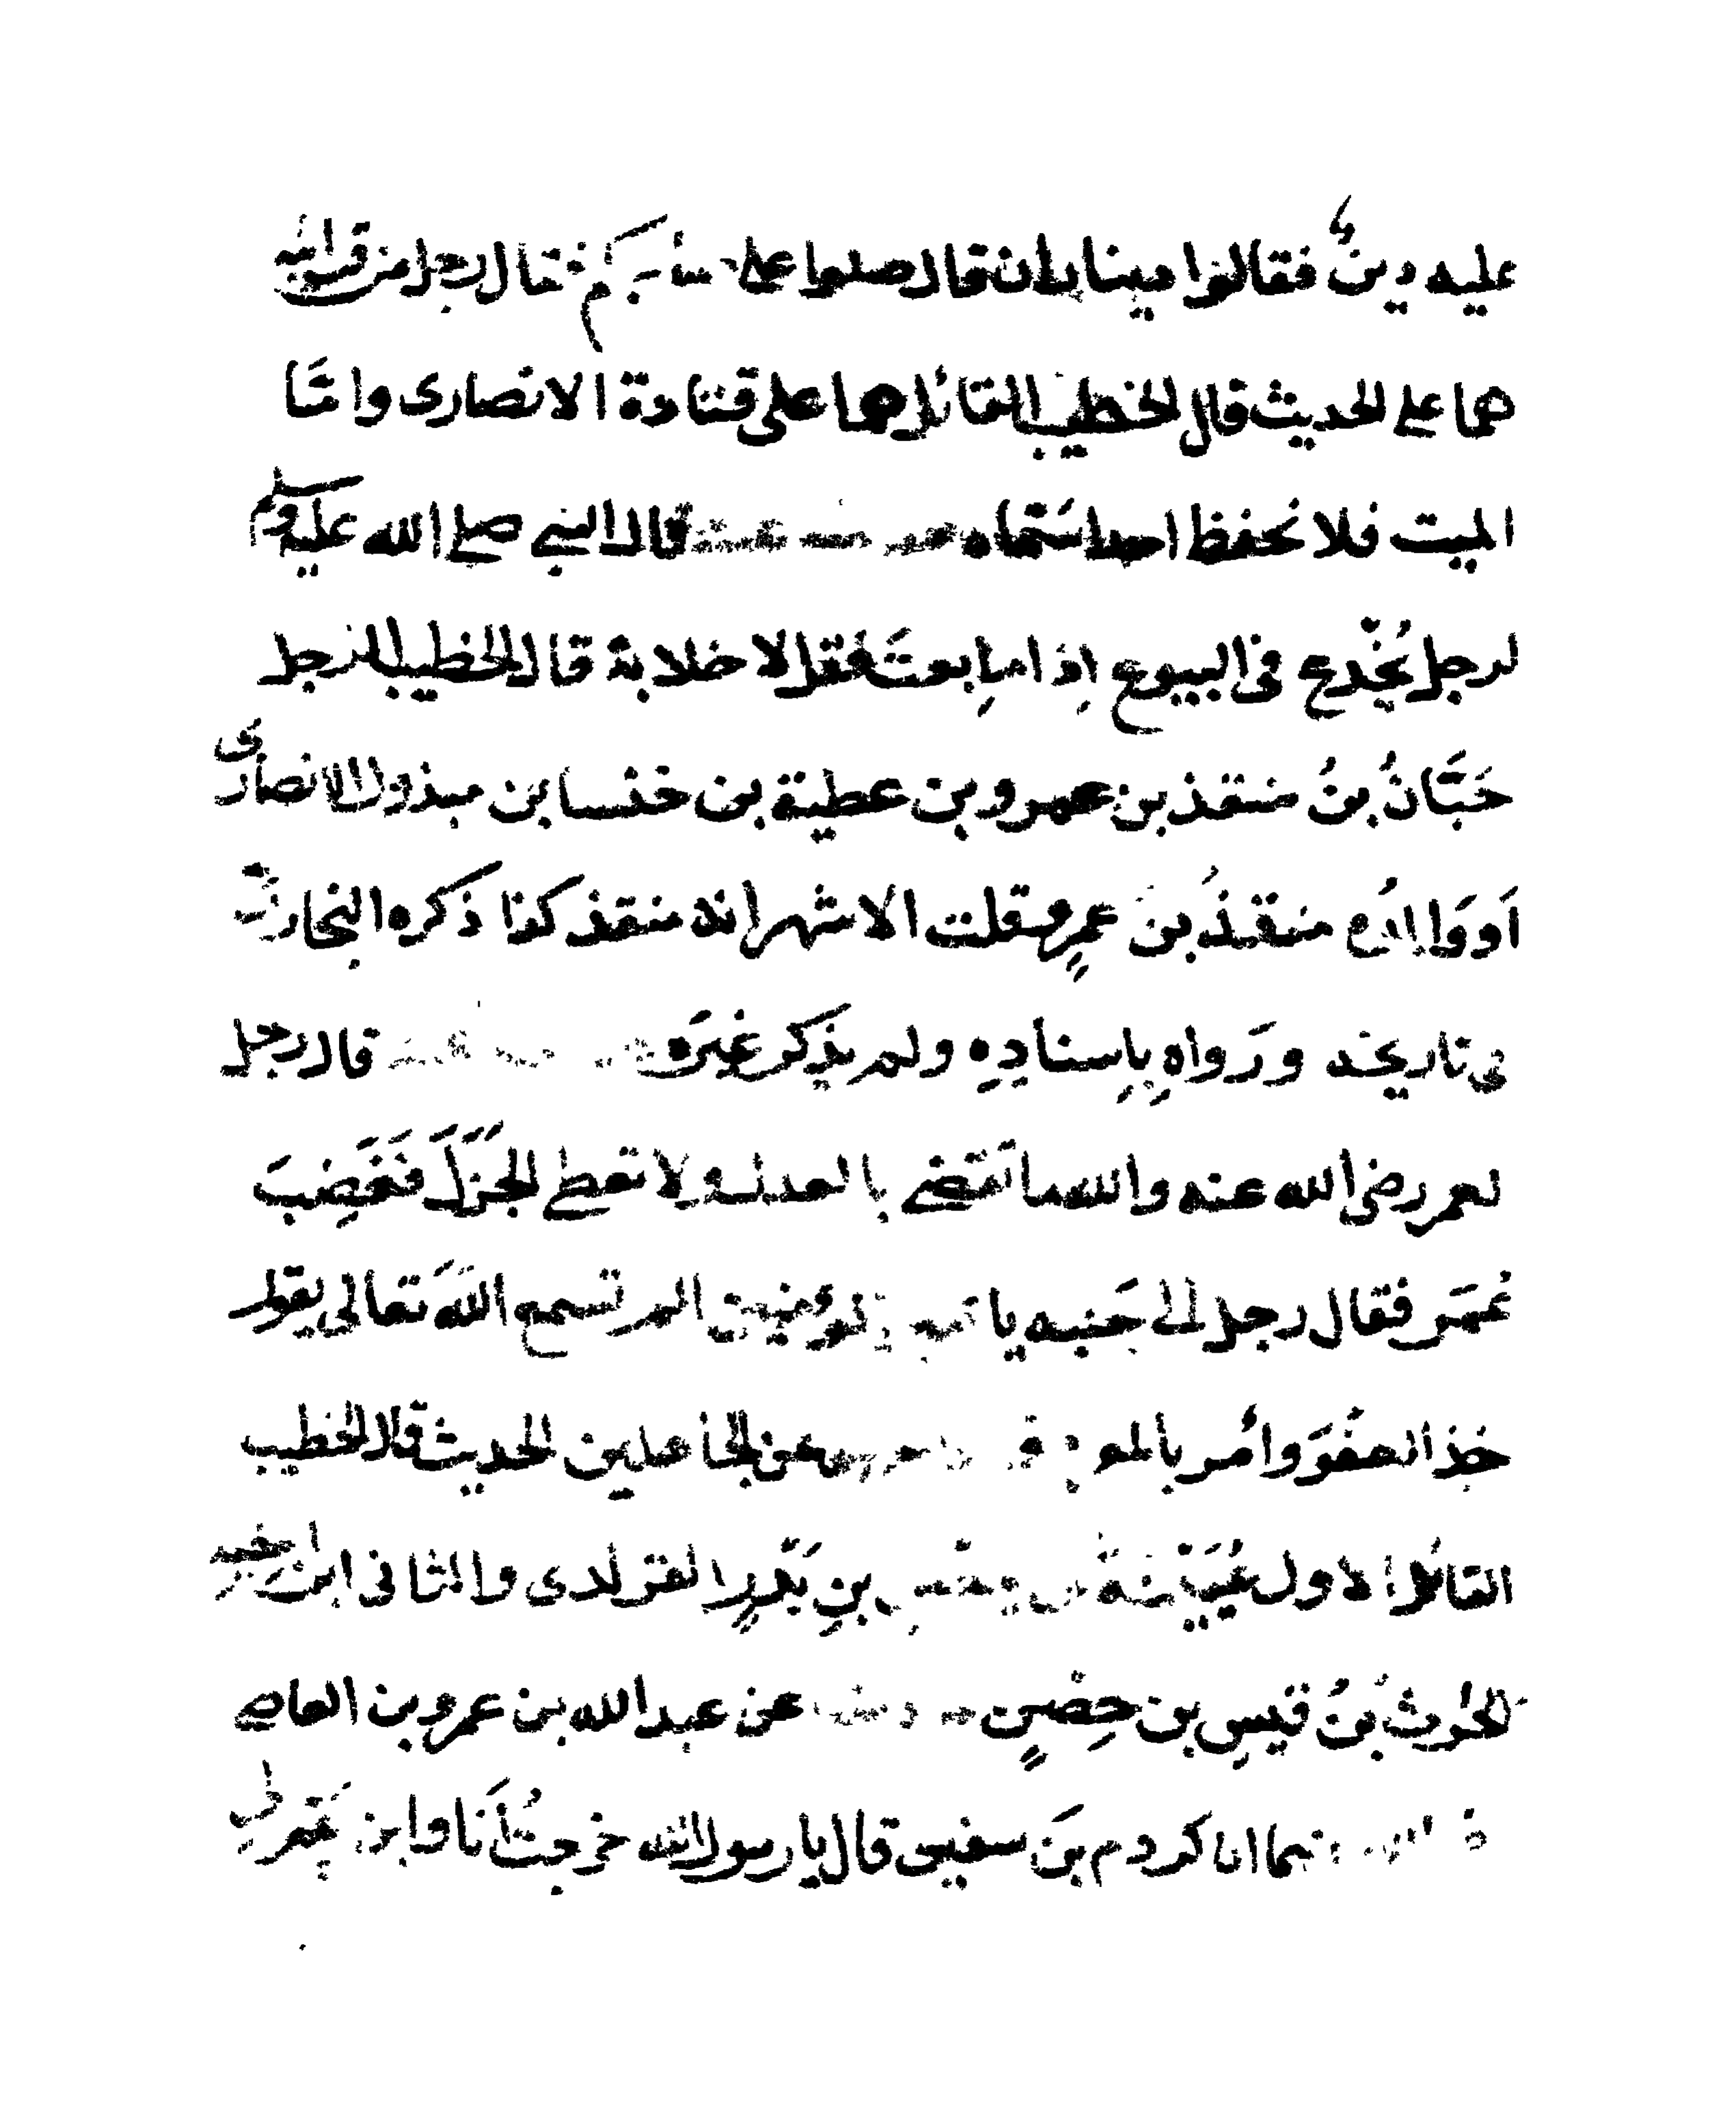 عليه دينٌ فقالوا ديناران قال صلوا على صاحبكم فقال رجل من قرابته
هما علي الحديث قال الخطيب القائل هما علي قتادة الانصاري وامّا
الميت فلا نحفظ احدا سَمّاه قال النبي صلى الله عليه وسلم
لرجل يُخْدع في البيوع اِذا ما بِعتَ فقل لا خلابة قال الخطيب الرجل
حَبَّانُ بنُ منقذ بن عمرو بن عطية بن خنسا بن مبذول الانصارى
اَو وَالدُه منقذُ بن عمرٍو قلت الاشهر انه منقذ كذا ذكره البخارى
في تاريخه ورَواهِ بِاِسنادِهِ ولم يذكر غيَره قال رجل
لعمر رضى الله عنه والله ما تقضي بالعدل ولا تعطي الجَزْلَ فغَضِبَ
عُمَر فقال رجل الى جَنبه يا امير المؤمنين الم تسمع اللهَ تعالى يقول
خذ العفْوَ وأمر بالعرف عن الجاهلين الحديث قال الخطيب
القائل الاول عُيَيْنةُ بن حصن بنِ بَدْرٍ الفزارى والثانى ابن اخيه
الحرث بنُ قيسِ بن حِصْنٍ عن عبد الله بن عمرو بن العاصي
انا كردم بنَ سفيى قال يا رسول الله خرجتُ اَنا وابن عَمٍّ لي